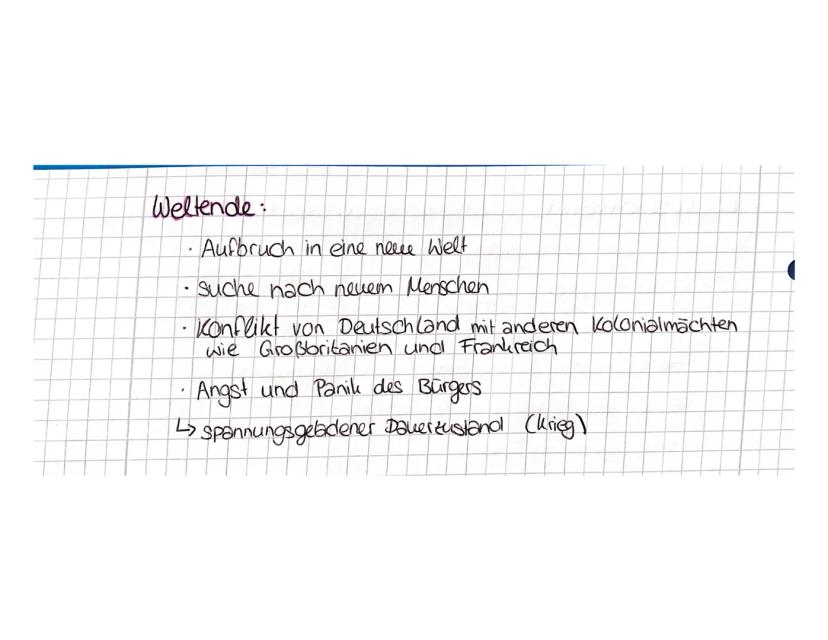 Weltende:
· Aufbruch in eine neue Welt
· suche nach neuem Menschen
· Konflikt von Deutschland mit anderen Kolonialmächten
wie Großbritanien und Frankreich
· Angst und Panik des Bürgers
↳ spannungsgeladener Dauerzustand (Krieg)